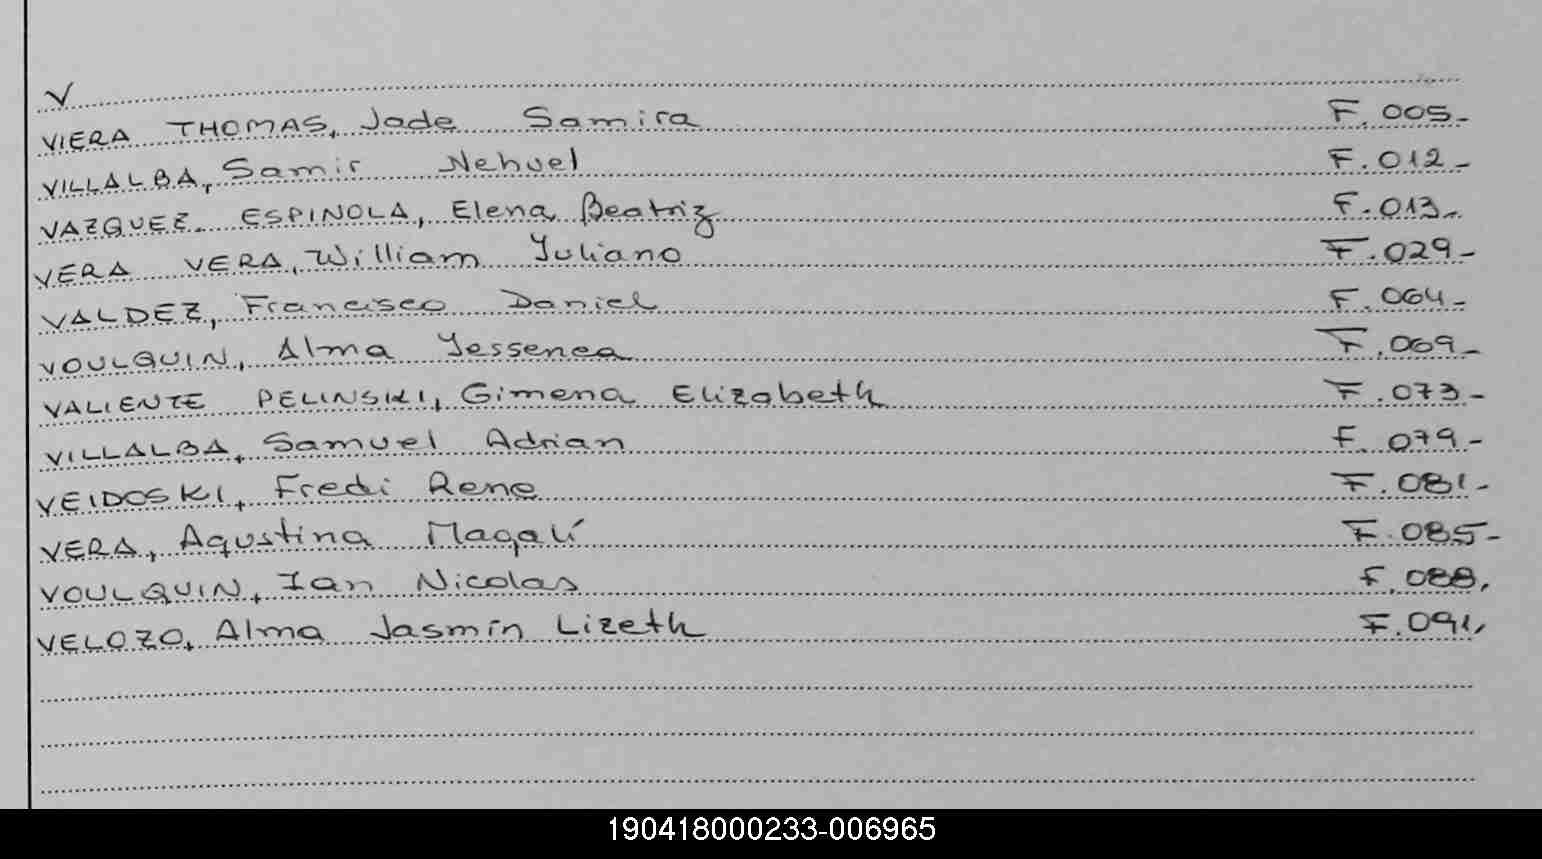 V
VIERA THOMAS, Jade Samira F. 005-
VILLALBA, Samir Nehuel F. 012-
VAZQUEZ ESPINOLA, Elena Beatriz F. 013-
VERA VERA, William Yuliano F. 029-
VALDEZ, Francisco Daniel F. 064-
VOULQUIN, Alma Yessenea F. 069-
VALIENTE PELINSKI, Gimena Elizabeth F. 073-
VILLALBA, Samuel Adrian F. 079-
VEIDOSKI, Fredi Rene F. 081-
VERA, Agustina Magalí F. 085-
VOULQUIN, Ian Nicolas F. 088,
VELOZO, Alma Jasmín Lizeth F. 091,
190418000233-006965